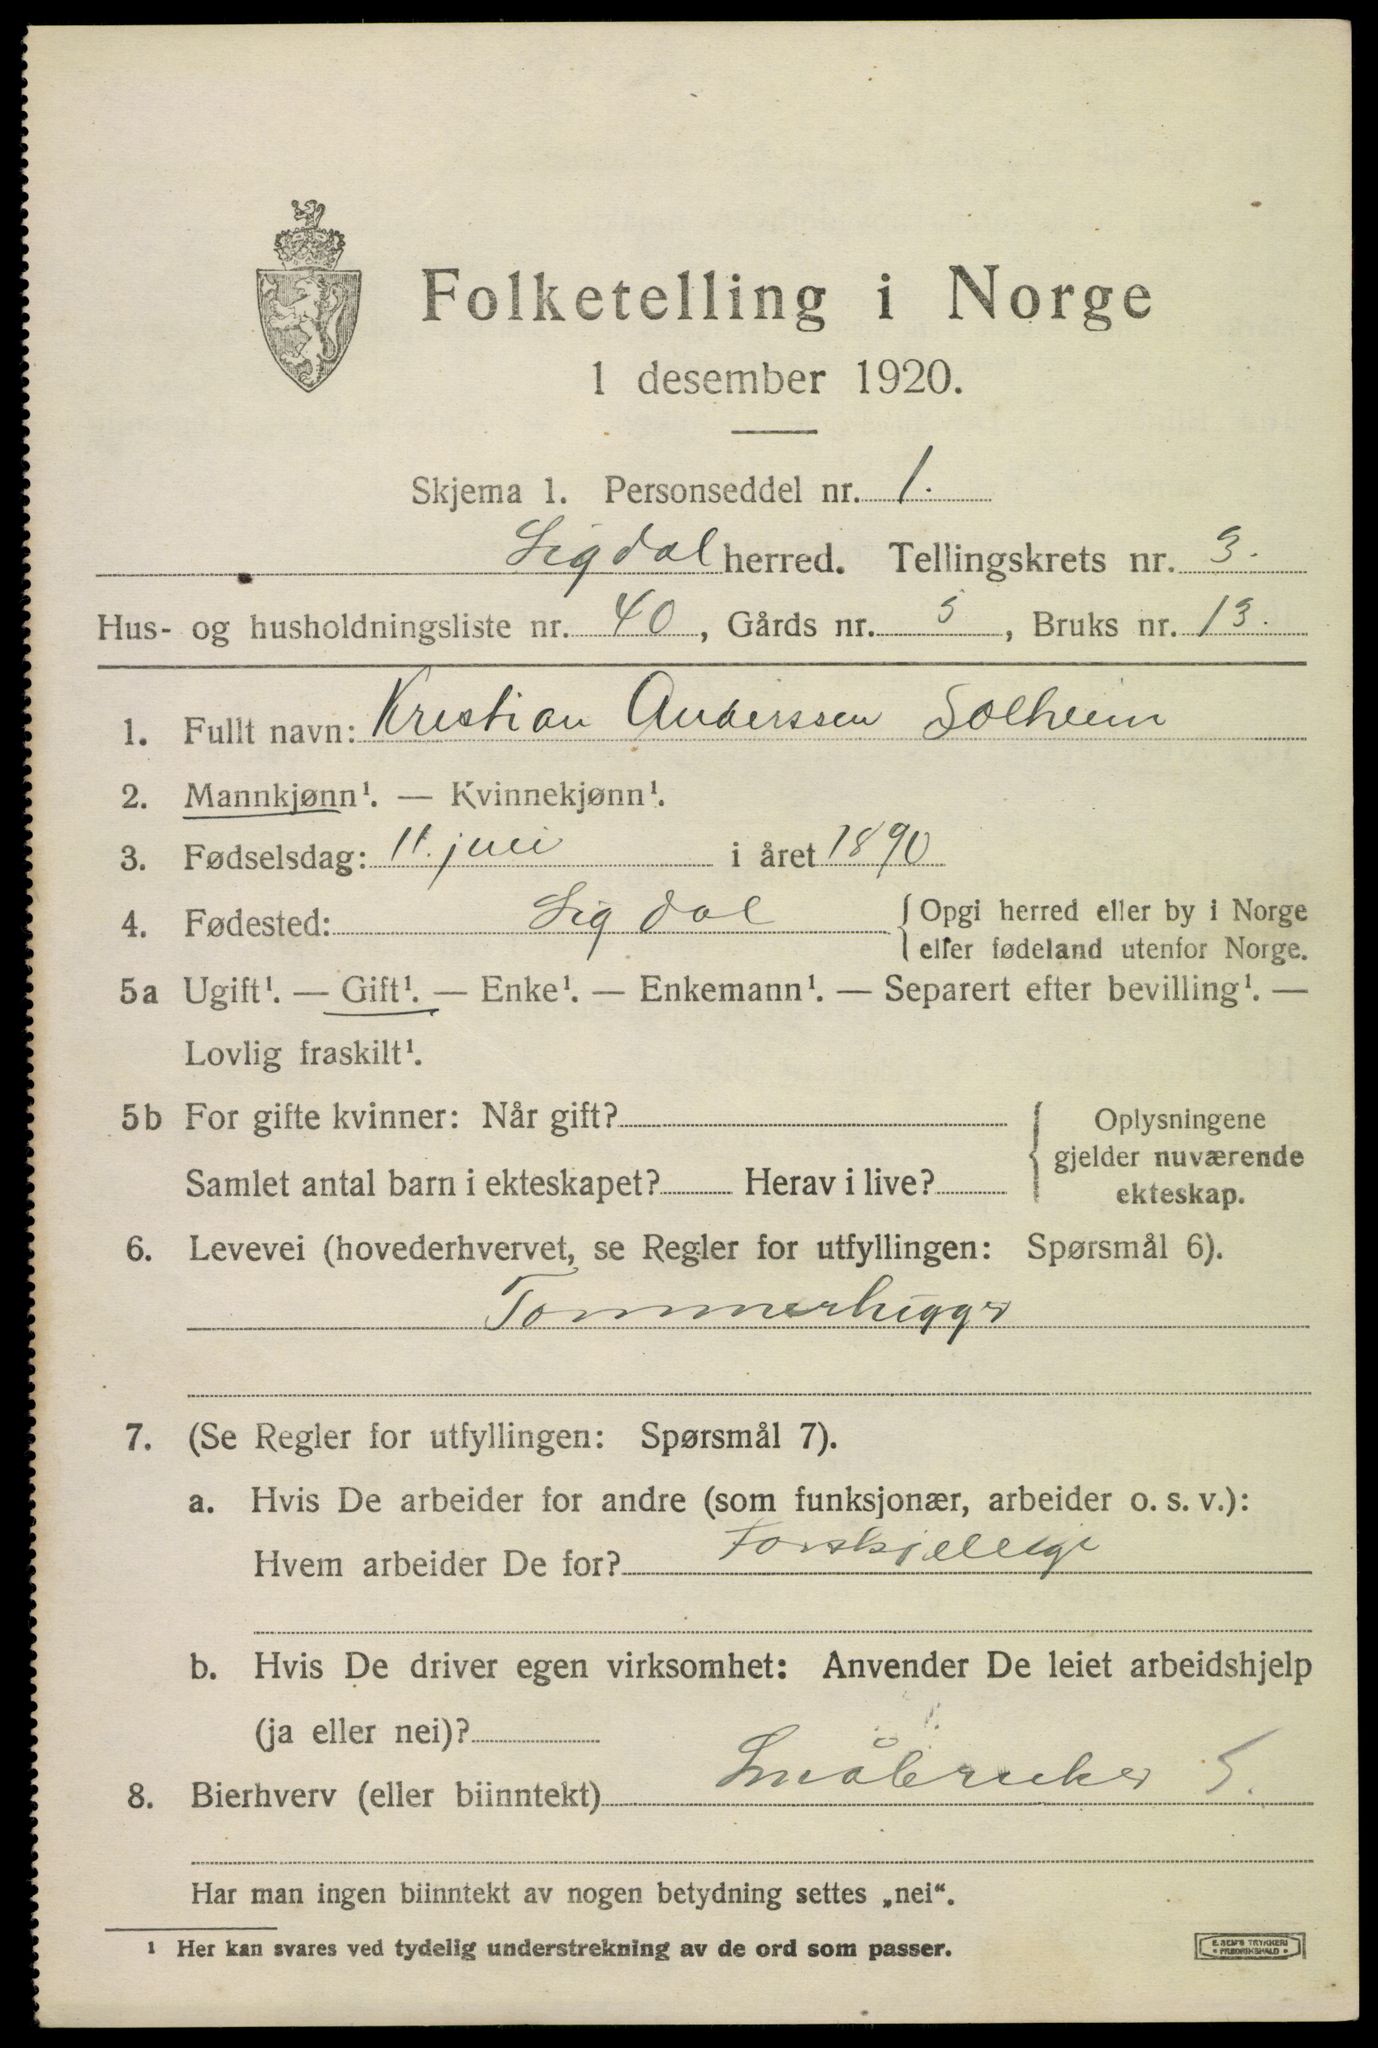 Folketelling i Norge
1 desember 1920.
Skjema 1. Personseddel nr. 1.
Sigdal herred. Tellingskrets nr. 3.
Hus- og husholdningsliste nr. 40, Gårds nr. 5, Bruks nr. 13.
1. Fullt navn: Kristian Anderssen Solheim
2. Mannkjønn¹. — Kvinnekjønn¹.
3. Fødselsdag: 11. juli i året 1890
4. Fødested: Sigdal { Opgi herred eller by i Norge
eller fødeland utenfor Norge.
5a Ugift¹. — Gift¹. — Enke¹. — Enkemann¹. — Separert efter bevilling¹. —
Lovlig fraskilt¹.
5b For gifte kvinner: Når gift? { Oplysningene
gjelder nuværende
Samlet antal barn i ekteskapet? Herav i live? ekteskap.
6. Levevei (hovederhvervet, se Regler for utfyllingen: Spørsmål 6).
Tømmerhugger
7. (Se Regler for utfyllingen: Spørsmål 7).
a. Hvis De arbeider for andre (som funksjonær, arbeider o. s. v.):
Hvem arbeider De for? Forskjellige
b. Hvis De driver egen virksomhet: Anvender De leiet arbeidshjelp
(ja eller nei)?
8. Bierhverv (eller biinntekt) Småbruker S.
Har man ingen biinntekt av nogen betydning settes „nei“.
¹ Her kan svares ved tydelig understrekning av de ord som passer.
E. SEM'S TRYKKERI
• FREDRIKSHALD •